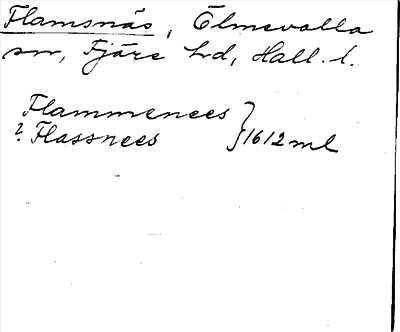 Flamsnäs, Ölmevalla
sn, Fjäre hd, Hall. l.
Flammenees } 1612 ml
? Flassnees